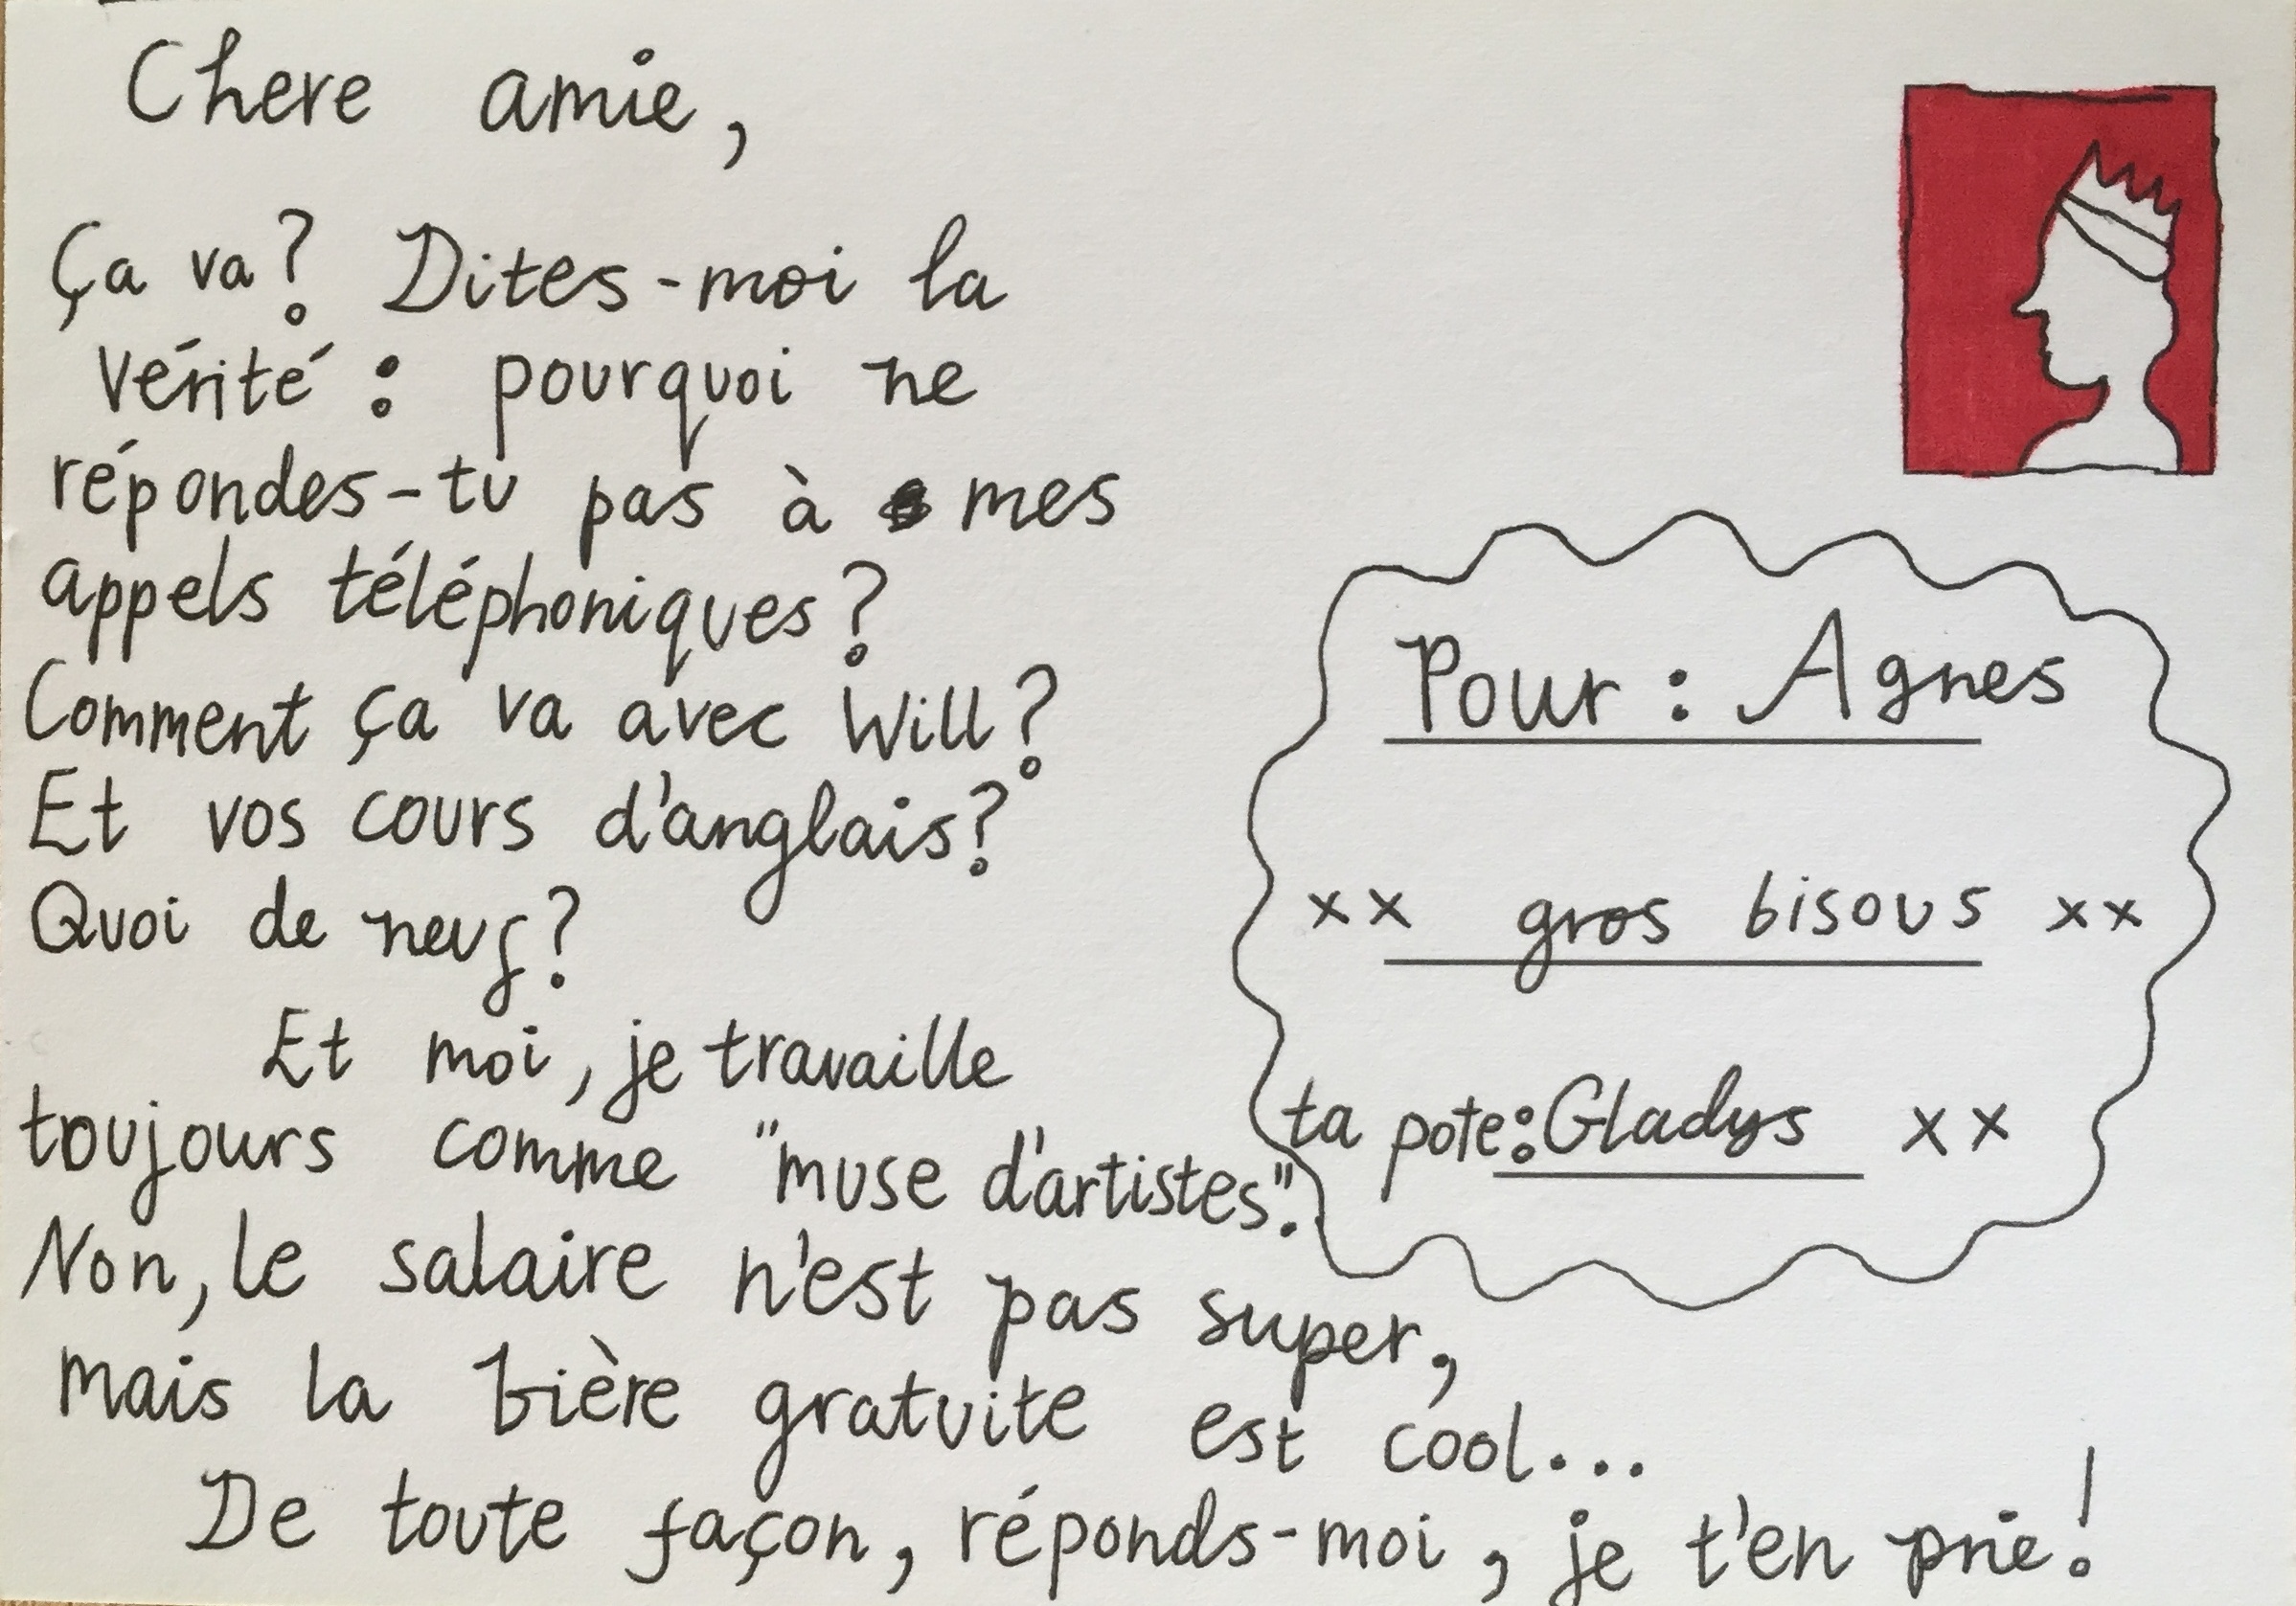 Chere amie,
Ça va? Dites-moi la
vérité : pourquoi ne
répondes-tu pas à mes
appels téléphoniques?
Comment ça va avec Will?
Et vos cours d'anglais?
Quoi de neuf?
Et moi, je travaille
toujours comme "muse d'artistes".
Non, le salaire n'est pas super,
mais la bière gratuite est cool...
De toute façon, réponds-moi, je t'en prie!
Pour : Agnes
xx gros bisous xx
ta pote: Gladys xx